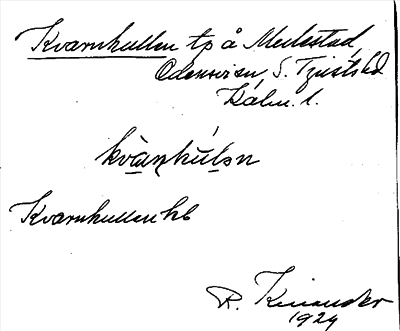 Kvarnkullen tp å Mulestad,
Odensvi sn, S. Tjusts hd
Kalm. l.
kvànkúlən
Kvarnkullen hb
R. Kinander
1929